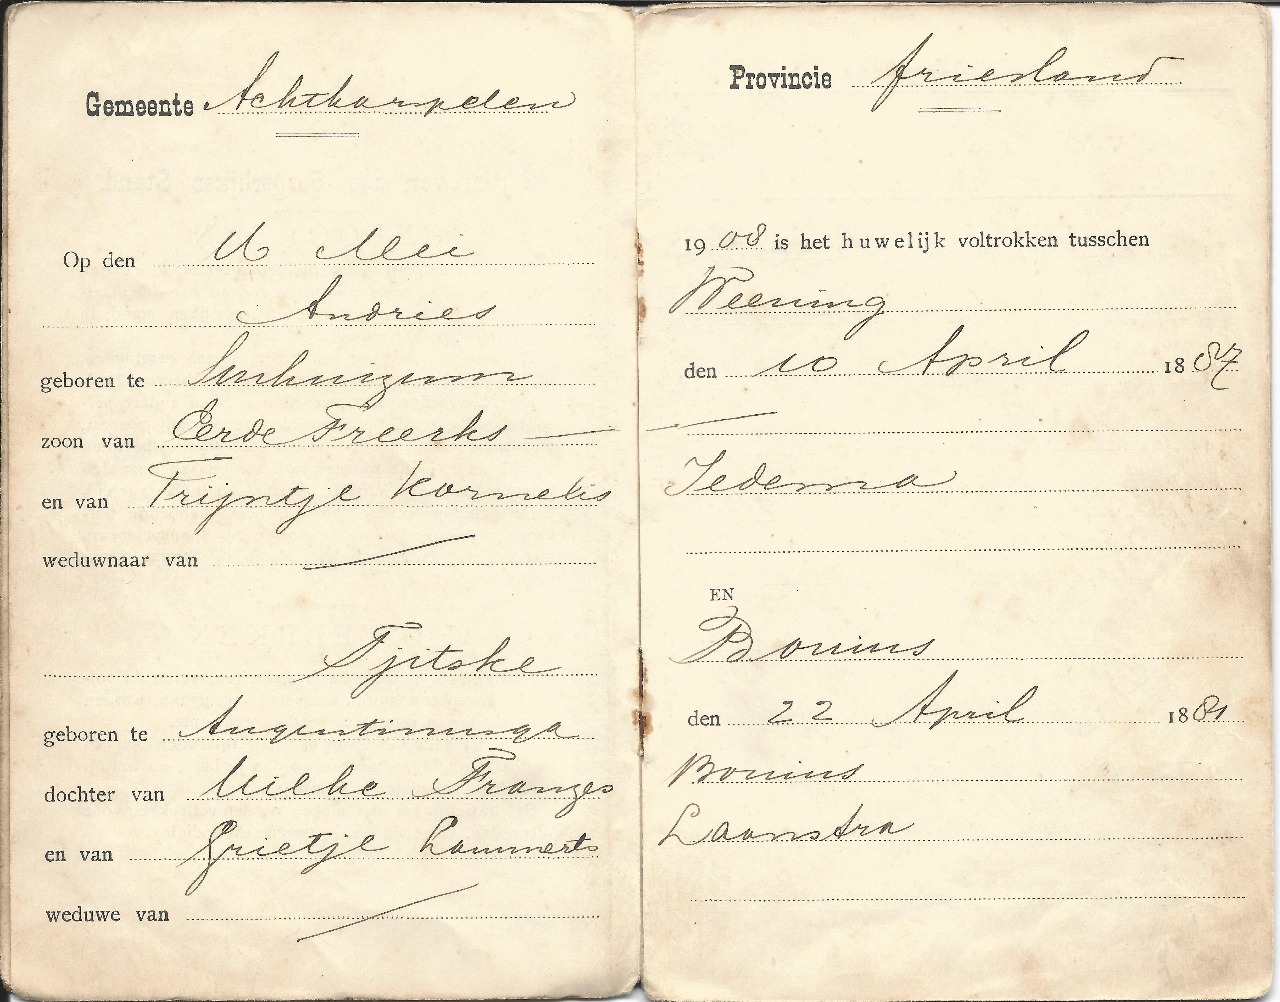 Gemeente Achtkarspelen
Op den 16 Mei
Andries
geboren te Surhuizum
zoon van Eerde Freerks —
en van Trijntje Kornelis
weduwnaar van —
Tjitske
geboren te Augustinusga
dochter van Wilke Franzes
en van Grietje Lammerts
weduwe van —
Provincie friesland
1908 is het huwelijk voltrokken tusschen
Weening
den 10 April 1887
—
Iedema
EN
Bouius
den 22 April 1881
Bouius
Laanstra